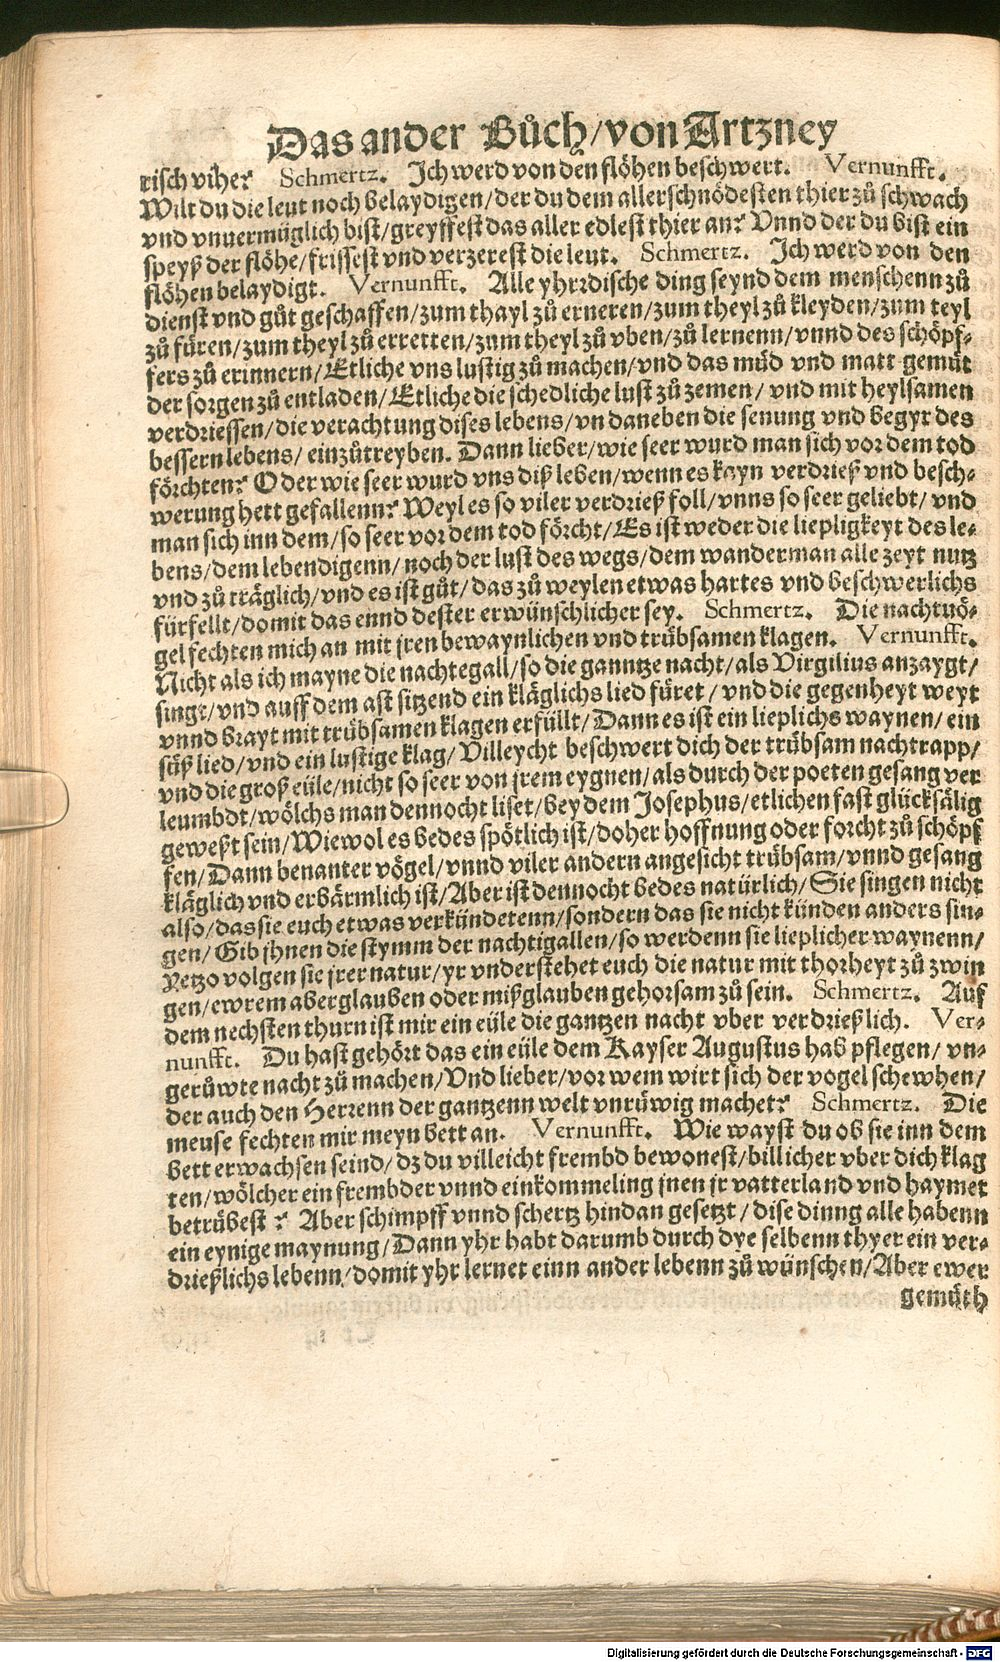 Das ander Bůch/von Artzney
risch vihe? Schmertz. Ich werd von den flöhen beschwert. Vernunfft.
Wilt du die leut noch belaydigen/der du dem allerschnödesten thier zů schwach
vnd vnuermüglich bist/greyffest das aller edlest thier an? Vnnd der du bist ein
speyß der flöhe/frissest vnd verzerest die leut. Schmertz. Ich werd von den
flöhen belaydigt. Vernunfft. Alle yhrrdische ding seynd dem menschenn zů
dienst vnd gůt geschaffen/zum thayl zů erneren/zum theyl zů kleyden/zum teyl
zů füren/zum theyl zů erretten/zum theyl zů vben/zů lernenn/vnnd des schöpf-
fers zů erinnern/Etliche vns lustig zů machen/vnd das müd vnd matt gemüt
der sorgen zů entladen/Etliche die schedliche lust zů zemen/ vnd mit heylsamen
verdriessen/die verachtung dises lebens/vn daneben die senung vnd begyr des
bessern lebens/ einzůtreyben. Dann lieber/wie seer wurd man sich vor dem tod
förchten? Oder wie seer wurd vns diß leben/wenn es kayn verdrieß vnd besch-
werung hett gefallenn? Weyl es so viler verdrieß foll/vnns so seer geliebt/ vnd
man sich inn dem/so seer vor dem tod förcht/Es ist weder die liepligkeyt des le-
bens/dem lebendigenn/noch der lust des wegs/dem wanderman alle zeyt nutz
vnd zů träglich/vnd es ist gůt/das zů weylen etwas hartes vnd beschwerlichs
fürfellt/domit das ennd dester erwünschlicher sey. Schmertz. Die nachtuö-
gel fechten mich an mit jren bewaynlichen vnd trübsamen klagen. Vernunfft.
Nicht als ich mayne die nachtegall/so die ganntze nacht/als Virgilius anzaygt/
singt/vnd auff dem ast sitzend ein kläglichs lied füret/ vnd die gegenheyt weyt
vnnd brayt mit trübsamen klagen erfüllt/Dann es ist ein lieplichs waynen/ ein
süß lied/vnd ein lustige klag/Villeycht beschwert dich der trübsam nachtrapp/
vnd die groß eüle/nicht so seer von jrem eygnen/als durch der poeten gesang ver
leumbdt/wölchs man dennocht liset/bey dem Josephus/etlichen fast glücksälig
geweßt sein/Wiewol es bedes spötlich ist/doher hoffnung oder forcht zů schöpf
fen/Dann benanter vögel/vnnd viler andern angesicht trübsam/vnnd gesang
kläglich vnd erbärmlich ist/Aber ist dennocht bedes natürlich/Sie singen nicht
also/das sie euch etwas verkündetenn/sondern das sie nicht künden anders sin-
gen/Gib jhnen die stymm der nachtigallen/so werdenn sie lieplicher waynenn/
Yetzo volgen sie jrer natur/yr vnderstehet euch die natur mit thorheyt zů zwin
gen/ewrem aberglauben oder mißglauben gehorsam zů sein. Schmertz. Auf
dem nechsten thurn ist mir ein eüle die gantzen nacht vber verdrießlich. Ver-
nunfft. Du hast gehört das ein eüle dem Kayser Augustus hab pflegen/ vn-
gerůwte nacht zů machen/Vnd lieber/vor wem wirt sich der vogel schewhen/
der auch den Herrenn der gantzenn welt vnrůwig machet? Schmertz. Die
meuse fechten mir meyn bett an. Vernunfft. Wie wayst du ob sie inn dem
bett erwachsen seind/dz du villeicht frembd bewonest/billicher vber dich klag
ten/wölcher ein frembder vnnd einkommeling jnen jr vatterland vnd haymet
betrübest? Aber schimpff vnnd schertz hindan gesetzt/dise dinng alle habenn
ein eynige maynung/Dann yhr habt darumb durch dye selbenn thyer ein ver-
drießlichs lebenn/domit yhr lernet einn ander lebenn zů wünschen/Aber ewer
gemüth
Digitalisierung gefördert durch die Deutsche Forschungsgemeinschaft - DFG